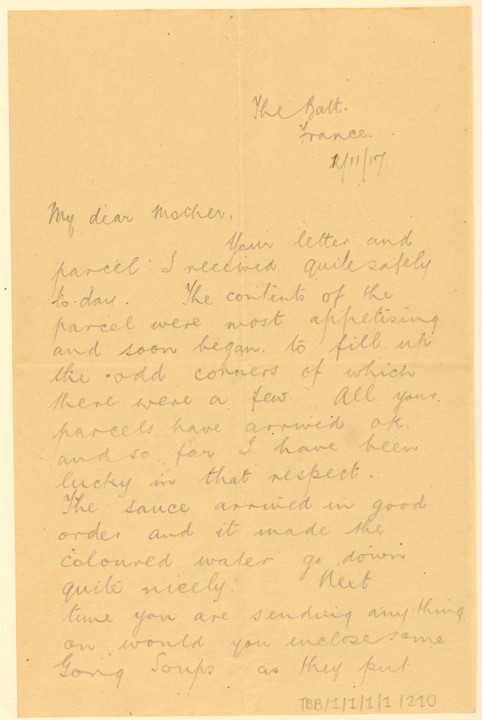 The Batt.
France.
/11/17
My dear Mother,
Your letter and
parcel I received quite safely
to-day. The contents of the
parcel were most appetising
and soon began to fill up
the odd corners of which
there were a few. All your
parcels have arrived ok.
and so far I have been
lucky in that respect.
The sauce arrived in good
order and it made the
coloured water go down
quite nicely. Next
time you are sending anything
on would you enclose some
Gong Soups as they put
TBB/1/1/1/1/210